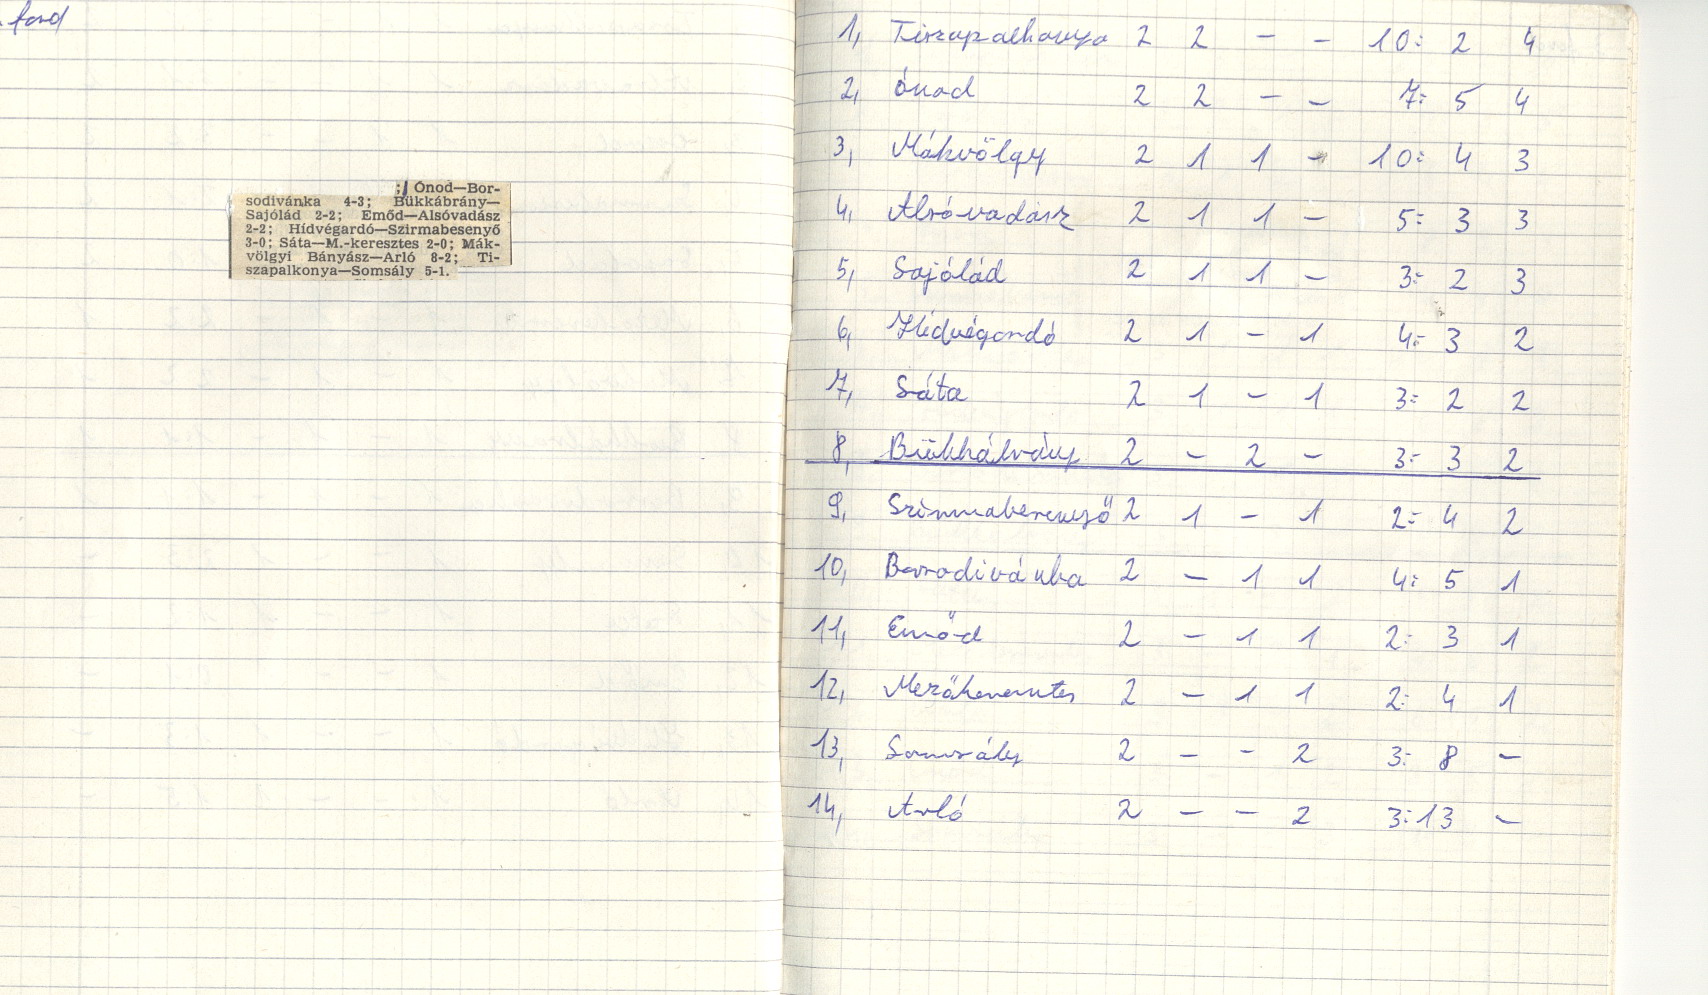 . ford
; Ónod—Bor-
sodivánka 4-3; Bükkábrány—
Sajólád 2-2; Emőd—Alsóvadász
2-2; Hídvégardó—Szirmabesenyő
3-0; Sáta—M.-keresztes 2-0; Mák-
völgyi Bányász—Arló 8-2; Ti-
szapalkonya—Somsály 5-1.
1, Tiszapalkonya 2 2 - - 10: 2 4
2, Ónod 2 2 - - 7: 5 4
3, Mákvölgy 2 1 1 - 10: 4 3
4, Alsóvadász 2 1 1 - 5: 3 3
5, Sajólád 2 1 1 - 3: 2 3
6, Hídvégardó 2 1 - 1 4: 3 2
7, Sáta 2 1 - 1 3: 2 2
8, Bükkábrány 2 - 2 - 3: 3 2
9, Szirmabesenyő 2 1 - 1 2: 4 2
10, Borsodivánka 2 - 1 1 4: 5 1
11, Emőd 2 - 1 1 2: 3 1
12, Mezőkeresztes 2 - 1 1 2: 4 1
13, Somsály 2 - - 2 3: 8 -
14, Arló 2 - - 2 3: 13 -